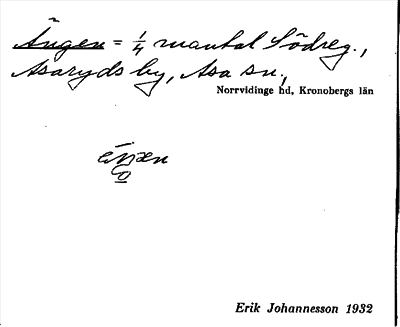 Ängen = 1/4 mantal Södreg.,
Asaryds by, Asa sn.,
Norrvidinge hd, Kronobergs län
Erik Johannesson 1932